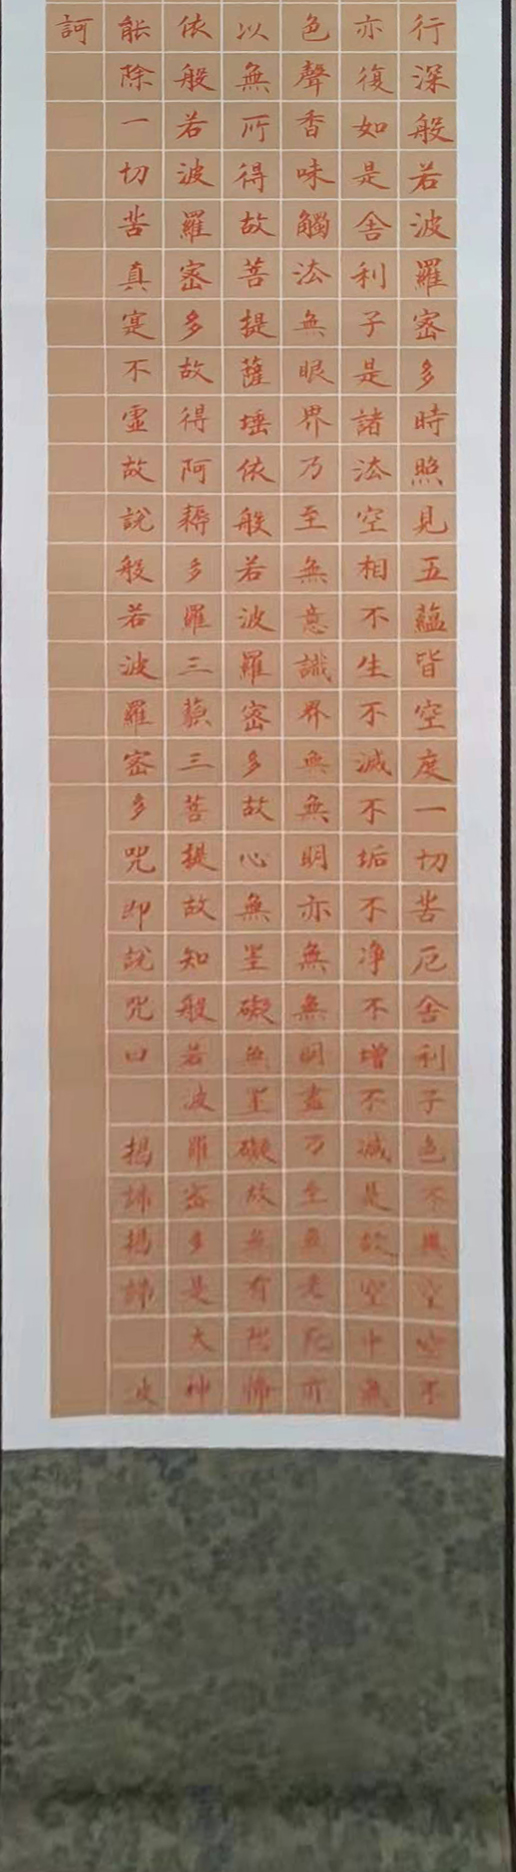 行深般若波羅密多時照見五蘊皆空度一切苦厄舍利子色不異空空不
亦復如是舍利子是諸法空相不生不滅不垢不净不增不減是故空中無
色聲香味觸法無眼界乃至無意識界無無明亦無無明盡乃至無老死亦
以無所得故菩提薩埵依般若波羅密多故心無罣礙無罣礙故無有恐怖
依般若波羅密多故得阿耨多羅三藐三菩提故知般若波羅密多是大神
能除一切苦真寔不虛故說般若波羅密多咒即說咒曰 揭諦揭諦 波
訶